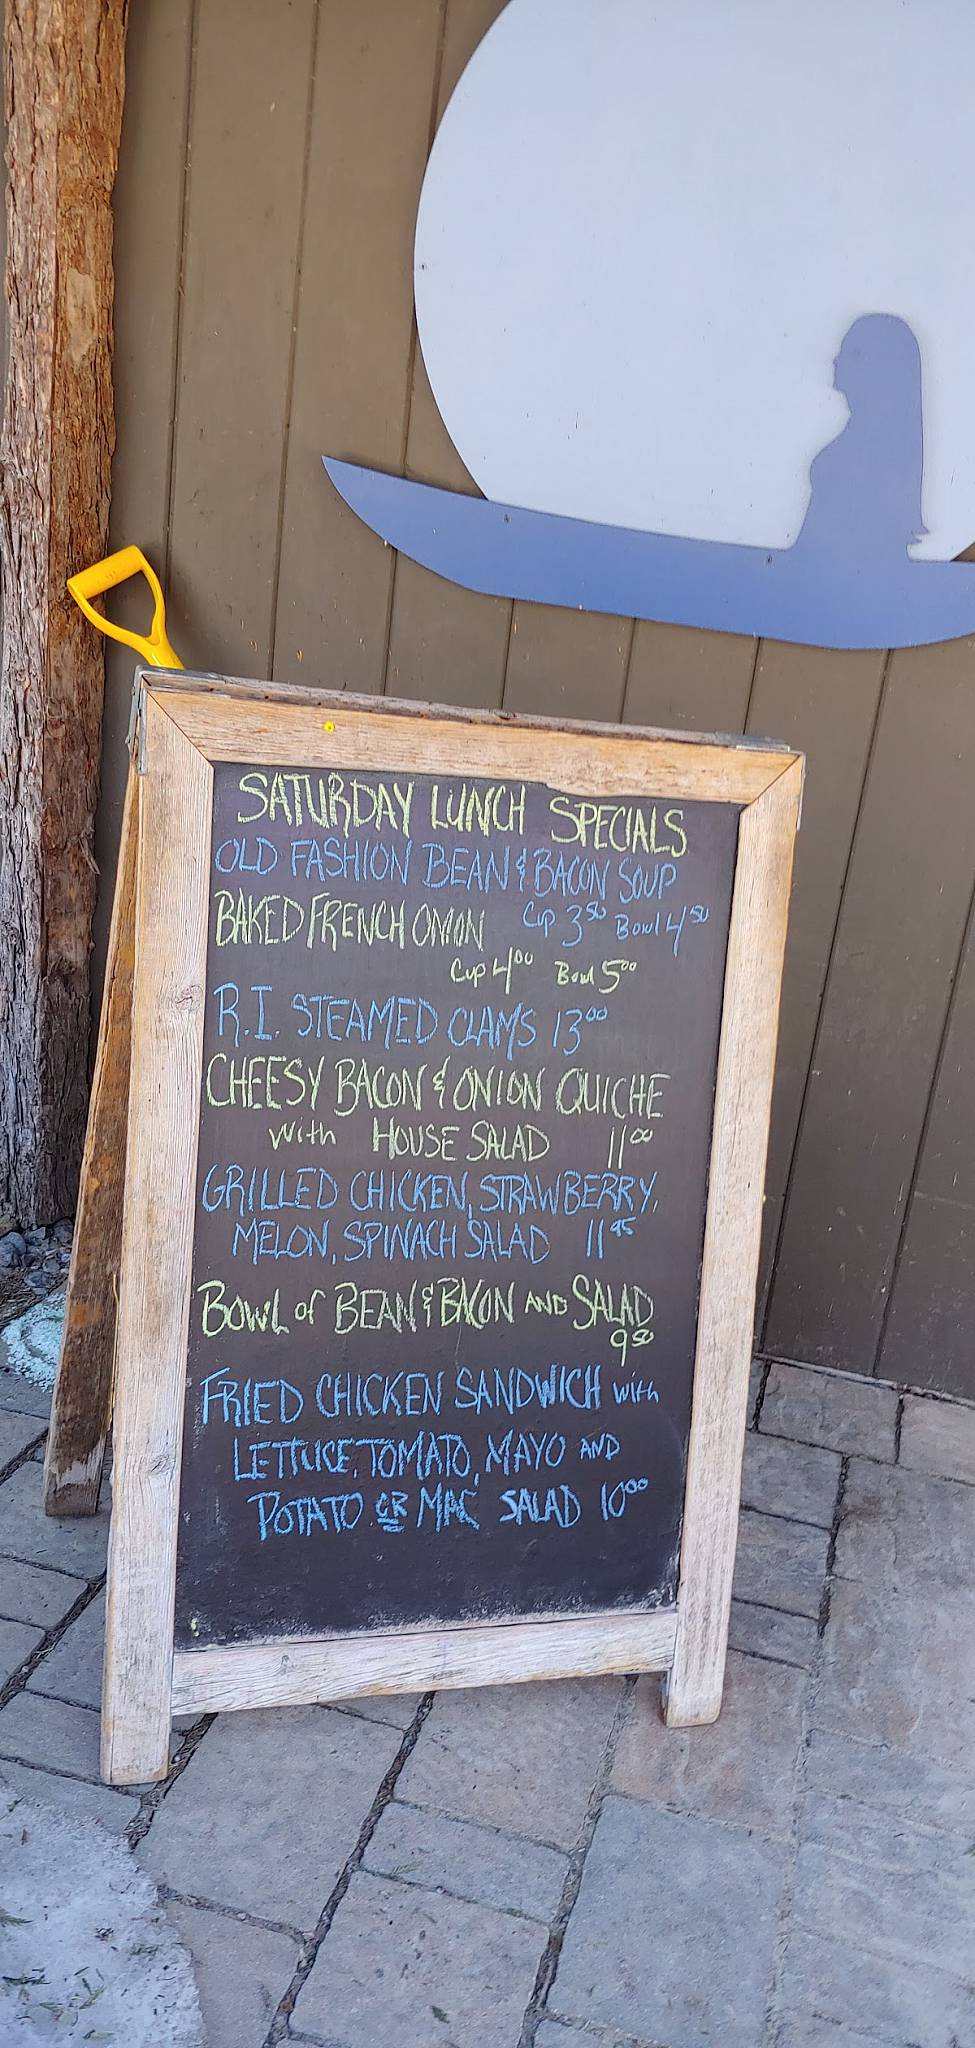 SATURDAY LUNCH SPECIALS
OLD FASHION BEAN & BACON SOUP
Cup 3.50 Bowl 4.50
BAKED FRENCH ONION
Cup 4.00 Bowl 5.00
R.I. STEAMED CLAMS 13.00
CHEESY BACON & ONION QUICHE
with HOUSE SALAD 11.00
GRILLED CHICKEN, STRAWBERRY,
MELON, SPINACH SALAD 11.95
BOWL of BEAN & BACON AND SALAD
9.50
FRIED CHICKEN SANDWICH with
LETTUCE, TOMATO, MAYO AND
POTATO OR MAC SALAD 10.00